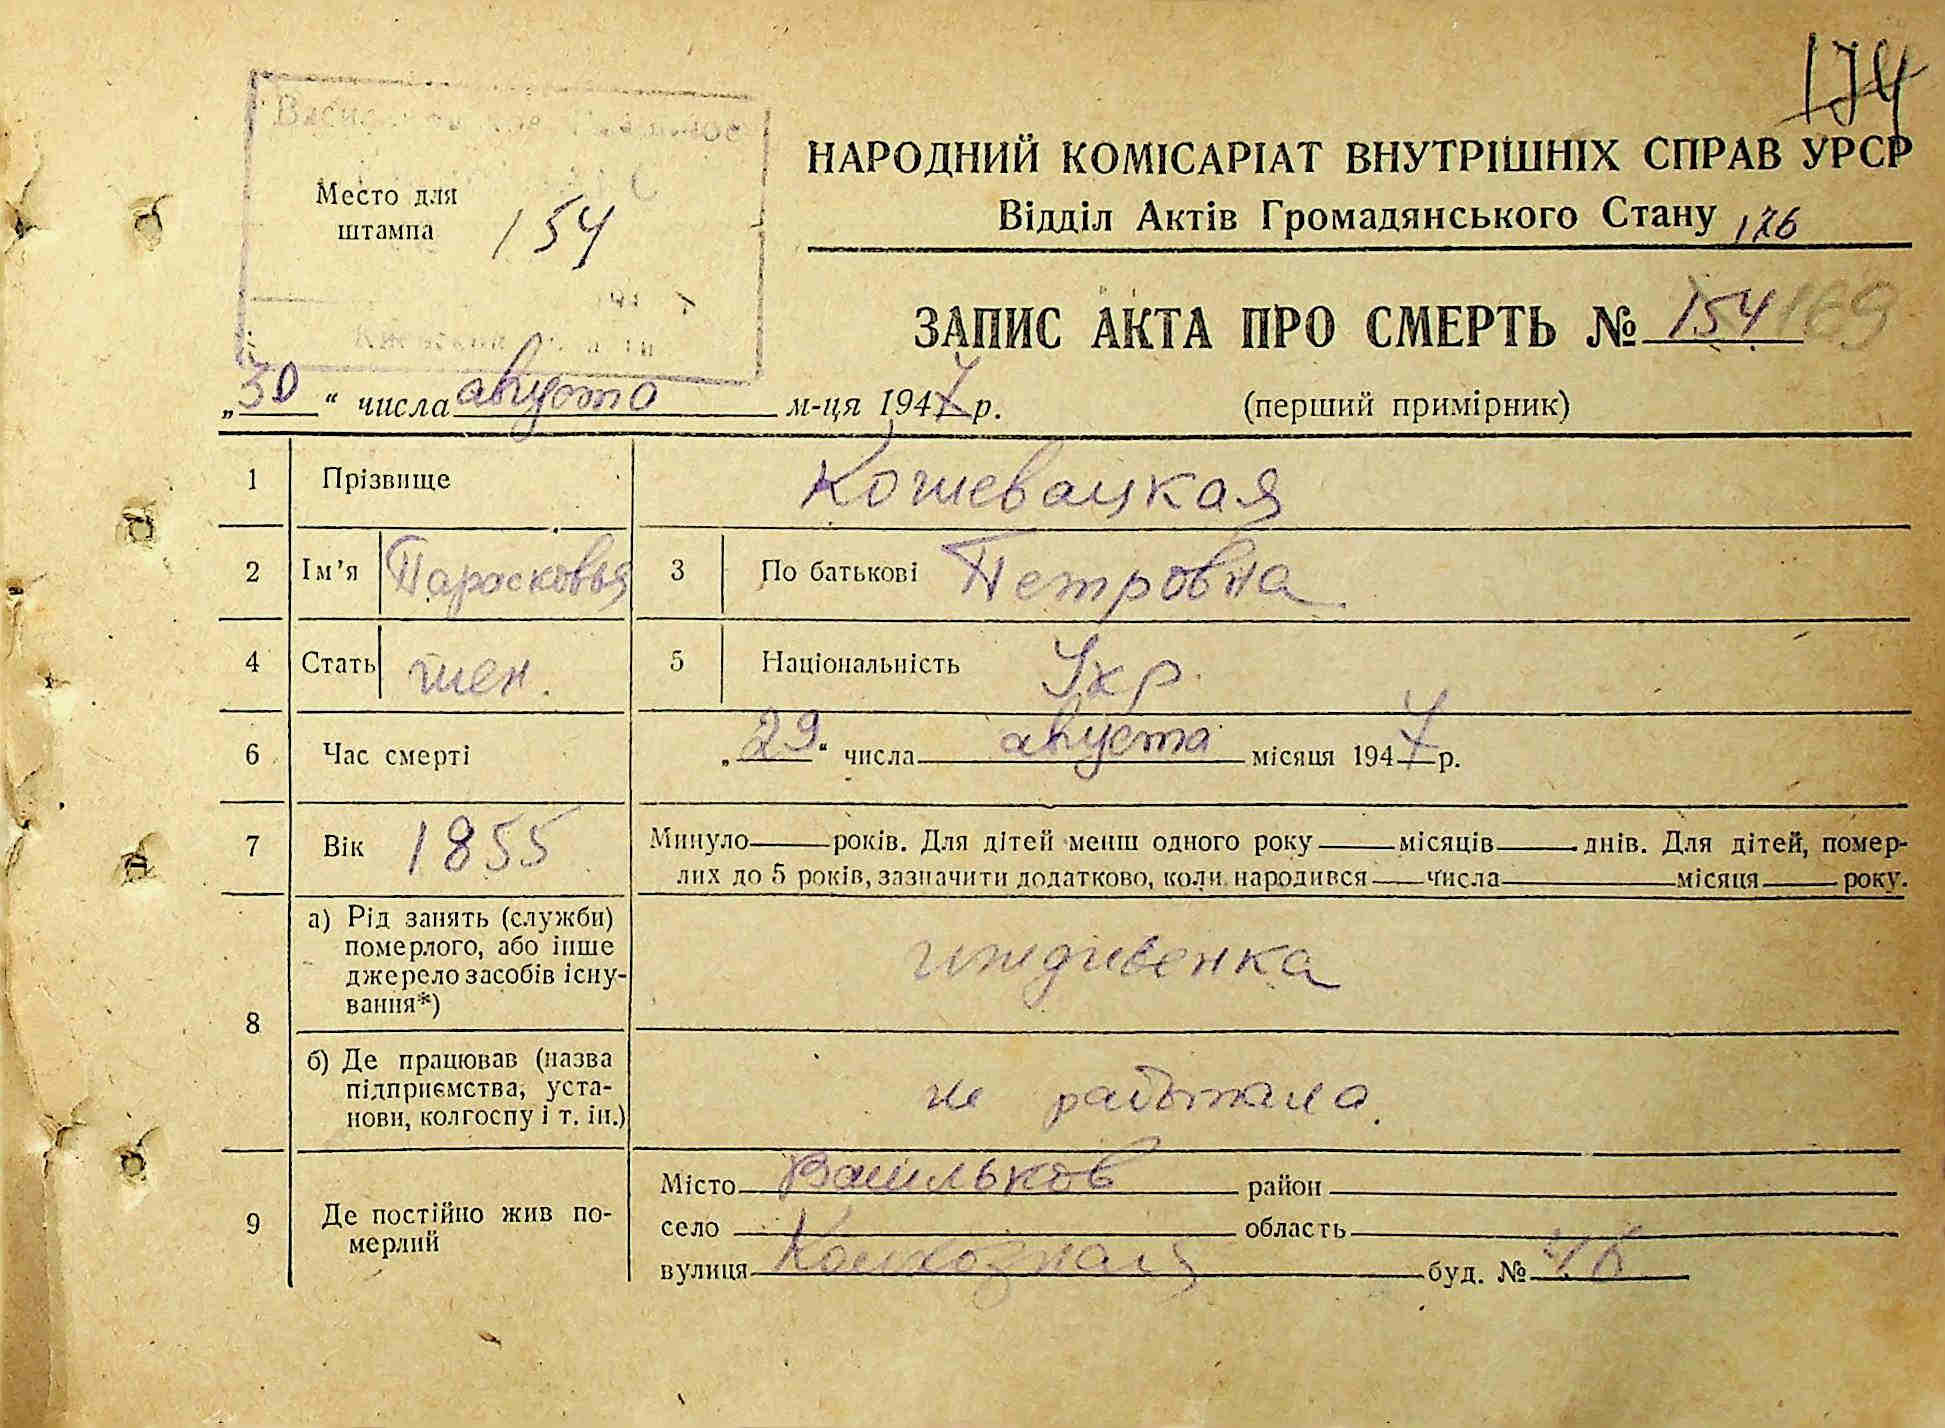 174
Место для
штампа 154
НАРОДНИЙ КОМІСАРІАТ ВНУТРІШНІХ СПРАВ УРСР
Відділ Актів Громадянського Стану 176
ЗАПИС АКТА ПРО СМЕРТЬ № 154 169
„30“ числа августа м-ця 1947 р. (перший примірник)
1 Прізвище Кошевацкая
2 Ім’я Парасковья 3 По батькові Петровна
4 Стать жен. 5 Національність Укр.
6 Час смерті „29“ числа августа місяця 1947 р.
7 Вік 1855 Минуло років. Для дітей менш одного року місяців днів. Для дітей, помер-
лих до 5 років, зазначити додатково, коли народився числа місяця року.
8 а) Рід занять (служби)
померлого, або інше
джерело засобів існу-
вання*) иждивенка
б) Де працював (назва
підприємства, уста-
нови, колгоспу і т. ін.) не работала.
9 Де постійно жив по-
мерлий
Місто Васильков район
село область
вулиця Колхозная буд. №